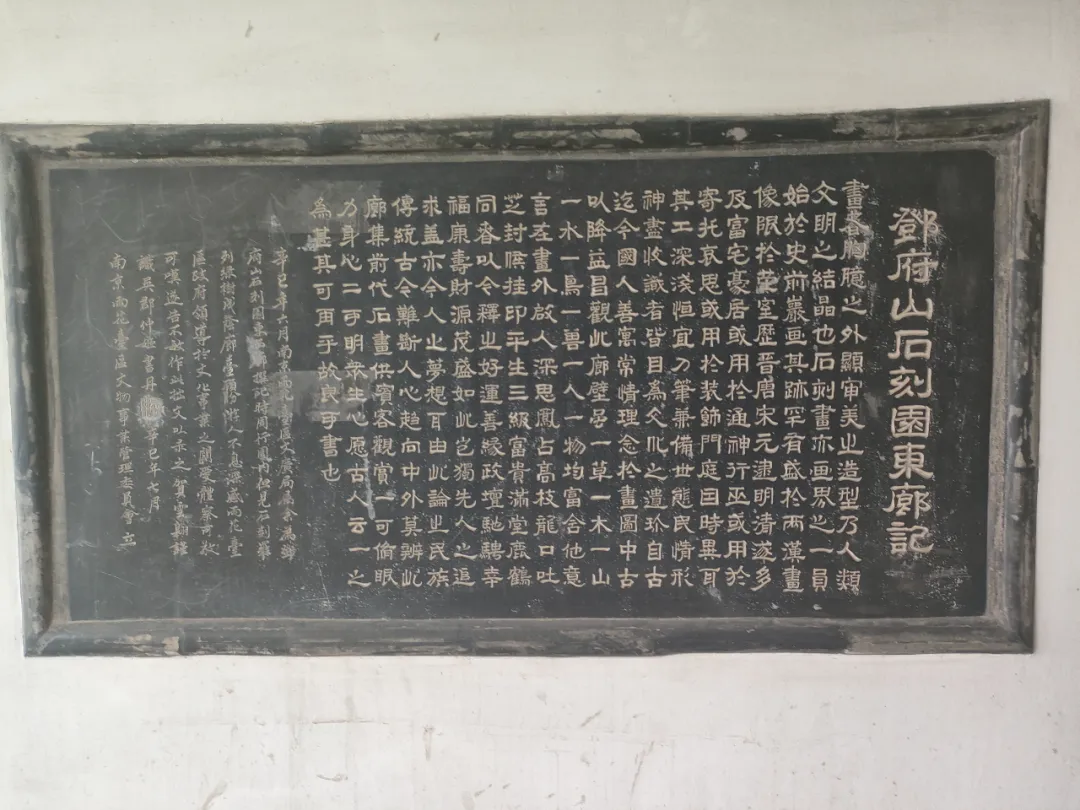 鄧府山石刻園東廊記
畫者胸臆之外顯審美之造型乃人類
文明之結晶也石刻畫亦画界之一員
始於史前巖画其跡罕有盛於兩漢畫
像眠於墓室歷晋唐宋元逮明清遂多
及富宅豪居或用於通神行巫或用於
寄托哀思或用於装飾門庭因時異耳
其工深淺恒宜刀筆兼備世態民情形
神畫收識者皆目為文化之遺珍自古
迄今國人善寓常情理念於畫圖中古
以降益昌觀此廊壁屠一草一木一山
一水一鳥一獸一人一物均富含他意
言在畫外啟人深思鳳占高枝龍口吐
芝封侯挂印平生三級富貴滿堂鹿鶴
同春以今釋之好運善緣政壇馳騁幸
福康壽財源茂盛如此豈獨先人之追
求盖亦今人之夢想耳由此論之民族
傳統古今難斷人心趋向中外莫辨此
廊集前代石畫供賓客觀賞一可愉眼
力身心二可明衆生心愿古人云一之
為甚其可再乎故良可書也
辛巳年六月南京雨花臺區文廣局屬余為鄧
府山石刻園東廊撰記時周行園内但見石刻華
列緑樹成蔭廊臺頗多游人不息深感雨花臺
區政府領導於文化事業之關愛體察可敬
可嘆遂告不敏作此拙文以示之賀雲翱謹
識吳郡仲 書丹 辛巳年七月
南京雨花臺區文物事業管理委員會立